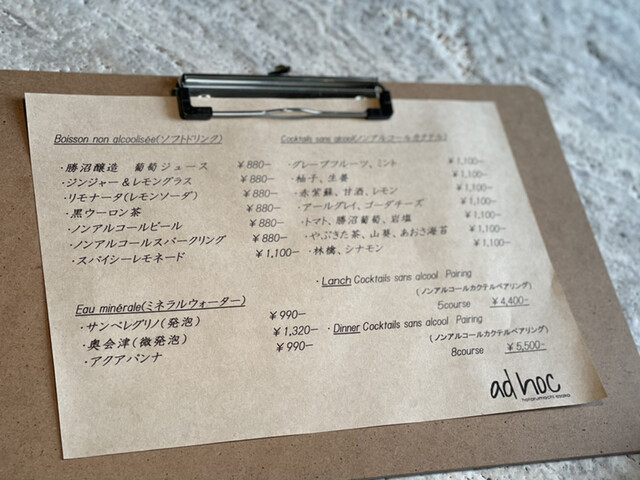 Boisson non alcoolisée(ソフトドリンク)
・勝沼醸造　葡萄ジュース ¥880-
・ジンジャー&レモングラス ¥880-
・リモナータ(レモンソーダ) ¥880-
・黒ウーロン茶 ¥880-
・ノンアルコールビール ¥880-
・ノンアルコールスパークリング ¥880-
・スパイシーレモネード ¥1,100-
Eau minérale(ミネラルウォーター)
・サンペレグリノ(発泡) ¥990-
・奥会津(微発泡) ¥1,320-
・アクアパンナ ¥990-
Cocktails sans alcool(ノンアルコールカクテル)
・グレープフルーツ、ミント ¥1,100-
・柚子、生姜 ¥1,100-
・赤紫蘇、甘酒、レモン ¥1,100-
・アールグレイ、ゴーダチーズ ¥1,100-
・トマト、勝沼葡萄、岩塩 ¥1,100-
・やぶきた茶、山葵、あおさ海苔 ¥1,100-
・林檎、シナモン ¥1,100-
・Lanch Cocktails sans alcool Pairing
(ノンアルコールカクテルペアリング)
5course ¥4,400-
・Dinner Cocktails sans alcool Pairing
(ノンアルコールカクテルペアリング)
8course ¥5,500-
ad hoc